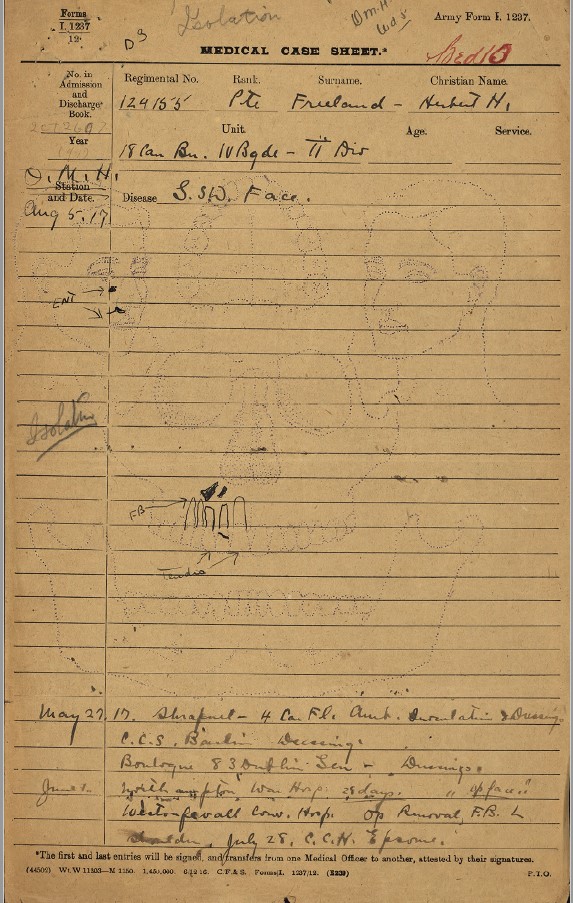 Forms
I. 1237
12.
Isolation
D3
Army Form I. 1237.
MEDICAL CASE SHEET.*
Bed 10
No. in Admission and Discharge Book.
Regimental No. Rank. Surname. Christian Name.
124155 Pte Freeland - Herbert H.
Year
Unit. Age. Service.
18 Can Bn. IV Bgde - II Div
O.M.H.
Station and Date.
Aug 5. 17
Disease S.S.W. Face.
ENT
Isolation
FB
May 27. 17. Shrapnel - 4 Ca. Fl. Amb. & Dressing
C.C.S. Dressing.
Boulogne 83 Dublin Gen - Dressings.
June War Hosp. 28 days. " op face "
Conv. Hosp. Op Removal F.B. L
Shoulder, July 28, C.C.H. Epsom.
*The first and last entries will be signed, and transfers from one Medical Officer to another, attested by their signatures.
(44502) Wt. W 11503—M 1150. 1,450,000. 6/12 16. C.F.& S. Forms/I. 1237/12. (E239) P.T.O.